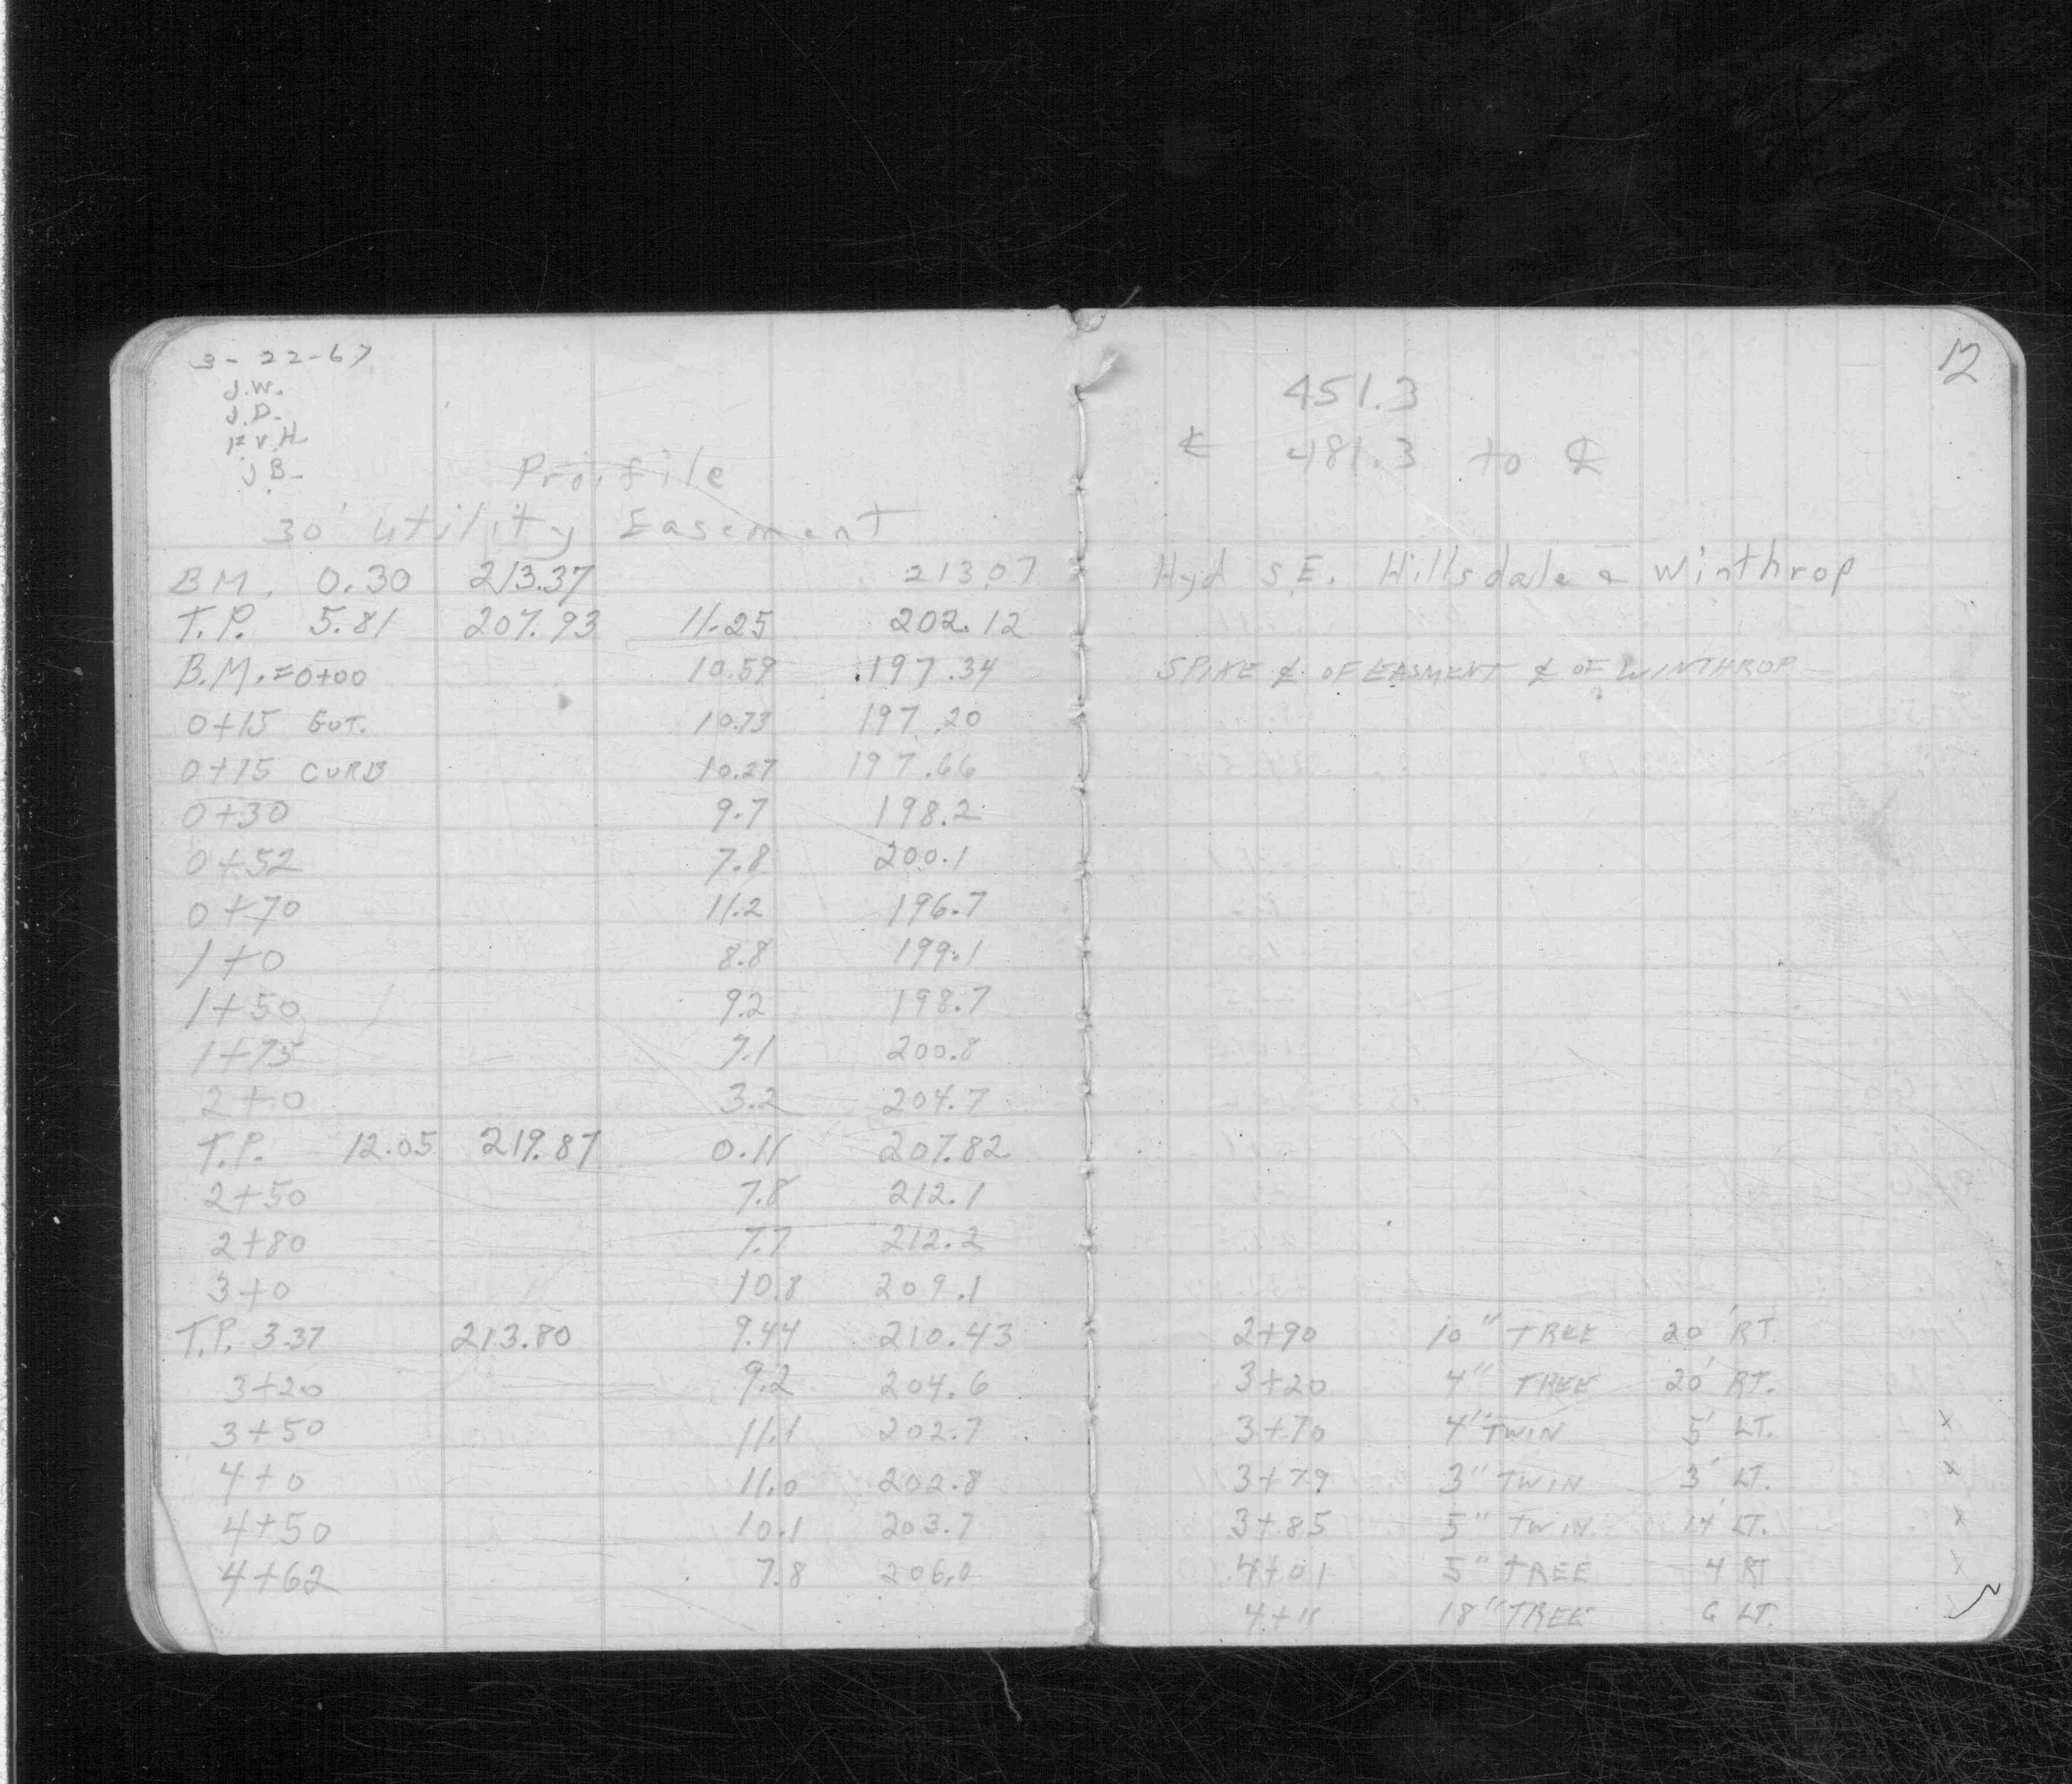 3-22-67
J.W.
J.D.
F.V.H.
J.B.
Profile
30' Utility Easement
B.M. 0.30 213.37 213.07
T.P. 5.81 207.93 11.25 202.12
B.M.=0+00 10.59 197.34
0+15 GUT. 10.73 197.20
0+15 CURB 10.27 197.66
0+30 9.7 198.2
0+52 7.8 200.1
0+70 11.2 196.7
1+0 8.8 199.1
1+50 9.2 198.7
1+75 7.1 200.8
2+0 3.2 204.7
T.P. 12.05 219.87 0.11 207.82
2+50 7.8 212.1
2+80 7.7 212.2
3+0 10.8 209.1
T.P. 3.37 213.80 9.44 210.43
3+20 9.2 204.6
3+50 11.1 202.7
4+0 11.0 202.8
4+50 10.1 203.7
4+62 7.8 206.0
12
451.3
℄ 481.3 to ℄
Hyd S.E. Hillsdale & Winthrop
SPIKE ℄ OF EASMENT ℄ OF WINTHROP
2+90 10" TREE 20' RT
3+20 4" TREE 20' RT.
3+70 4" TWIN 5' LT. x
3+79 3" TWIN 3' LT. x
3+85 5" TWIN 14' LT. x
4+01 5" TREE 4 RT x
4+11 18" TREE 6 LT.